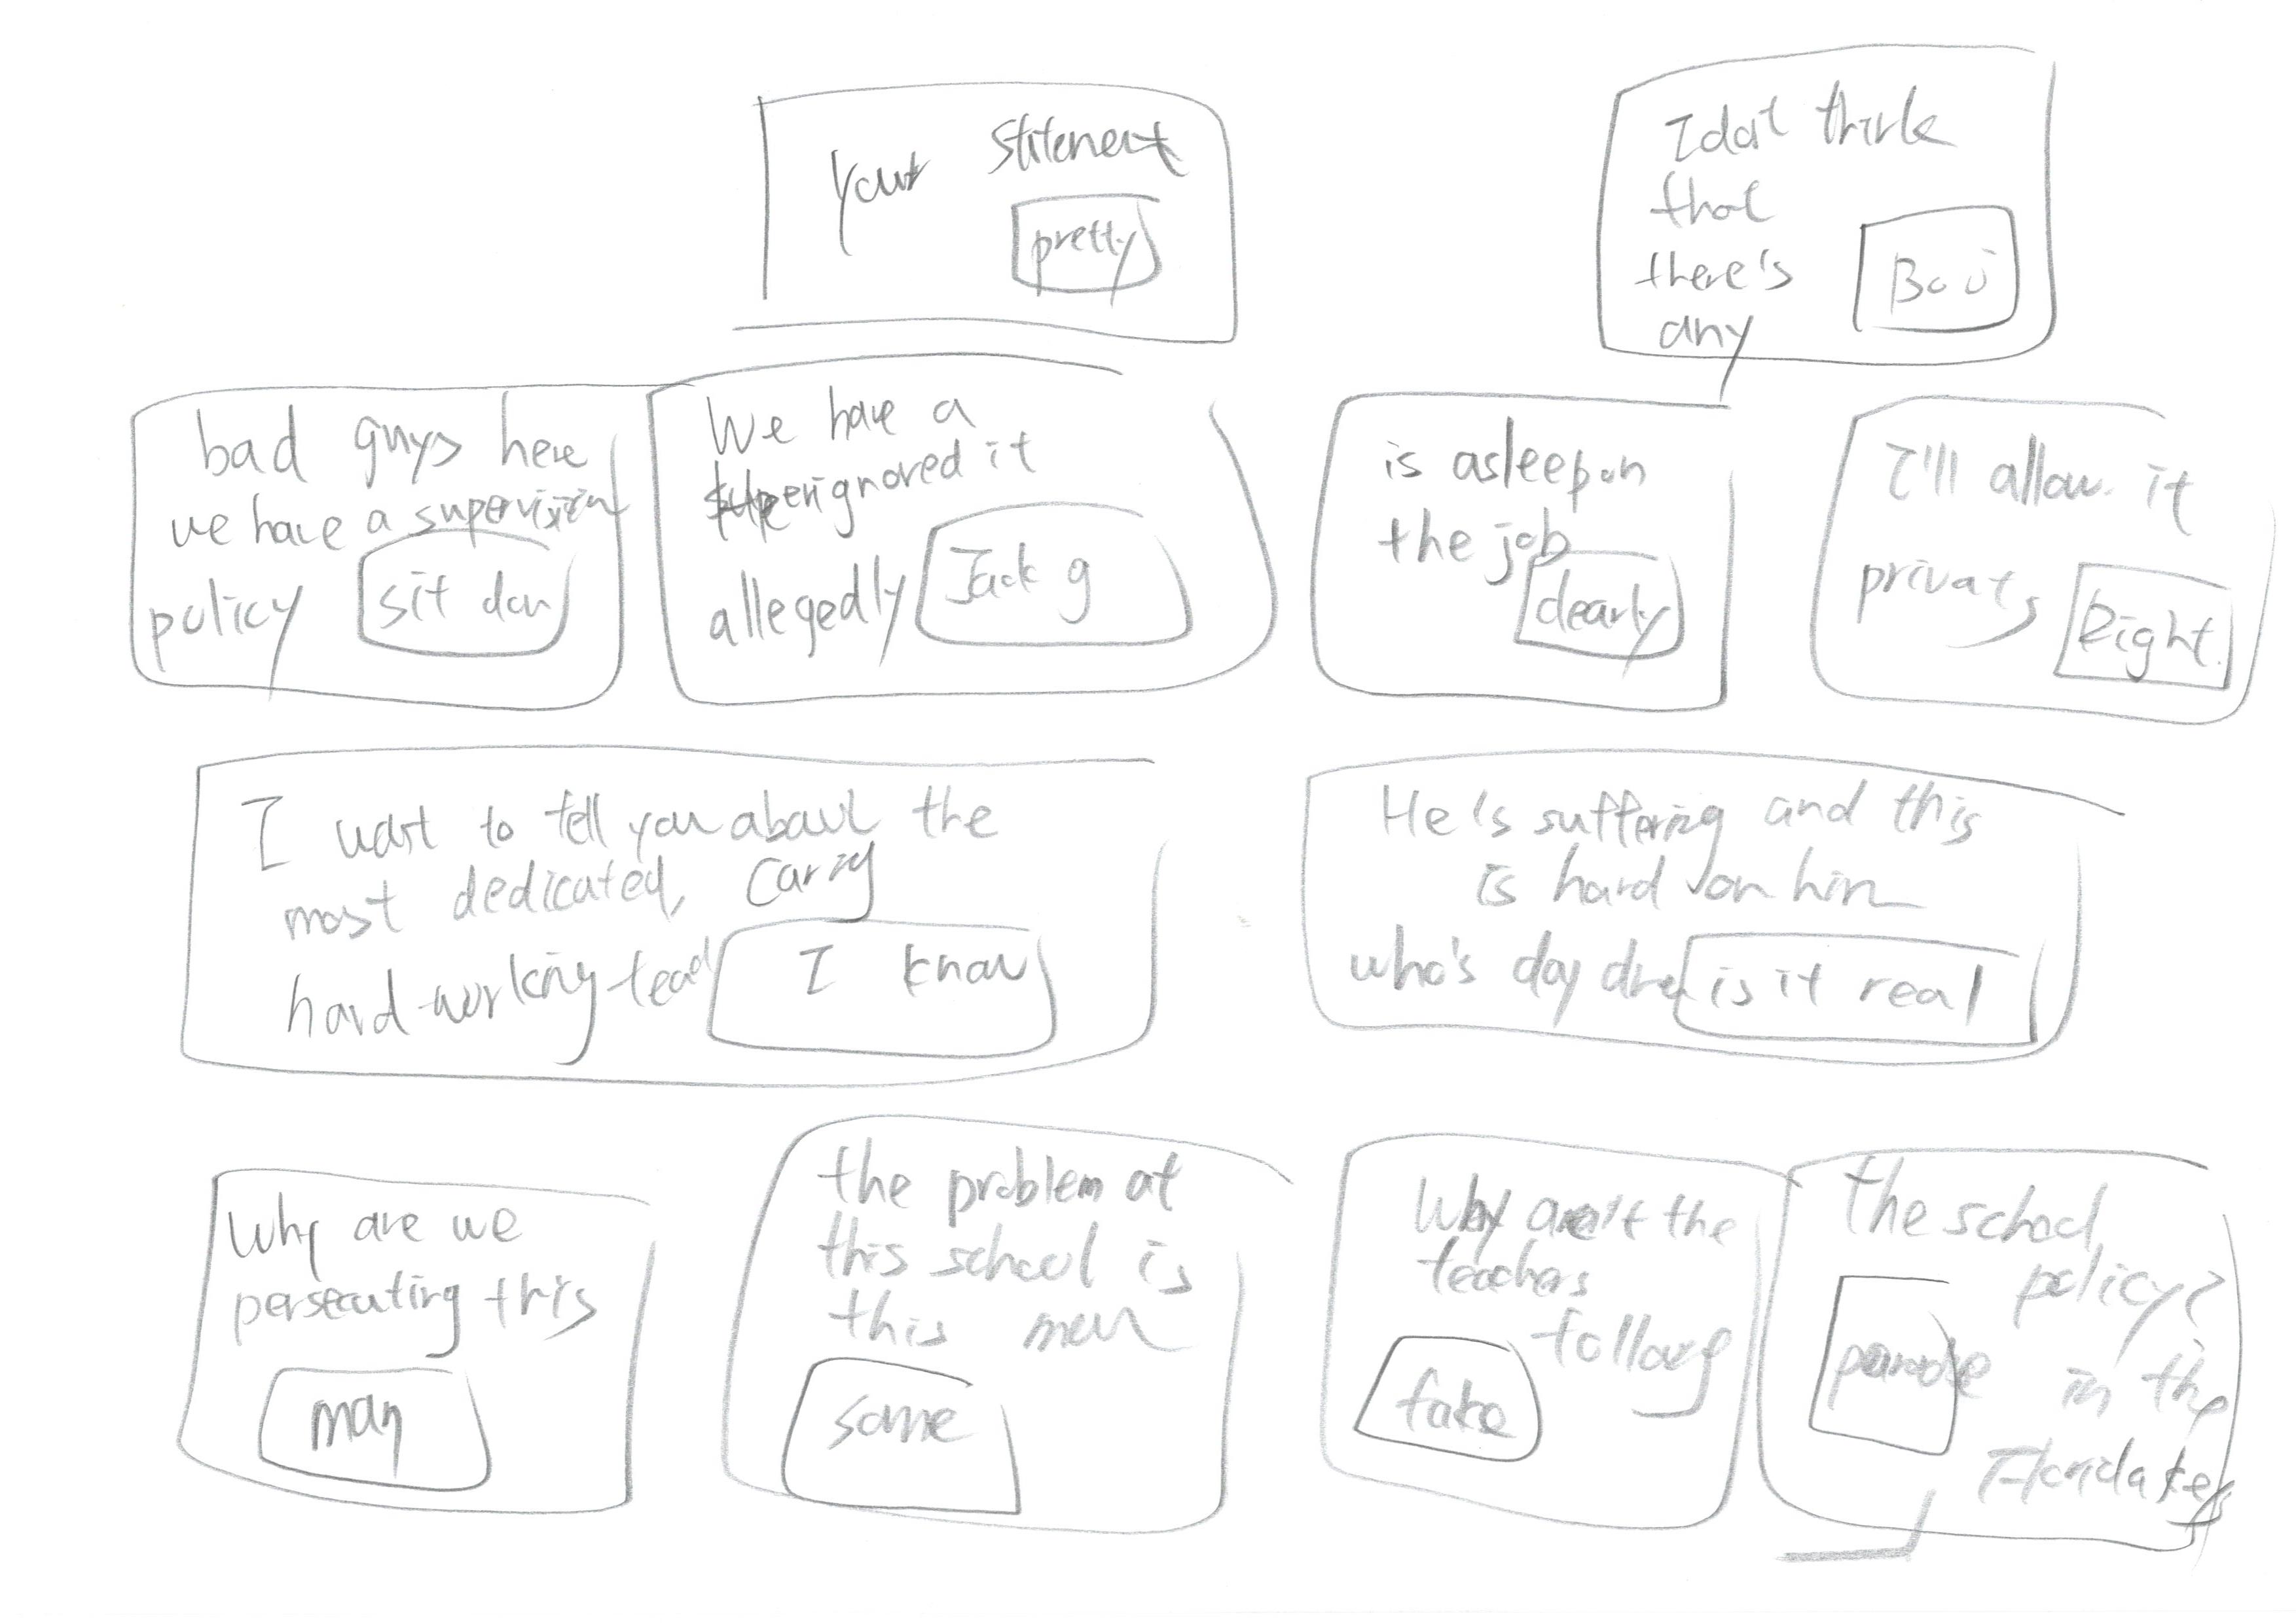 your statement
pretty
I don't think
that
there's
any
bad guys here
we have a supervision
policy
sit down
We have a
ignored it
allegedly
Jack g
is asleep on
the job
clearly
I'll allow it
Right.
I want to tell you about the
most dedicated,
hard-working
I know
He's suffering and this
is hard on him
who's day
is it real
Why are we
persecuting this
man
the problem at
this school is
this men
some
Why aren't the
teachers
fake
The school
policy?
in the